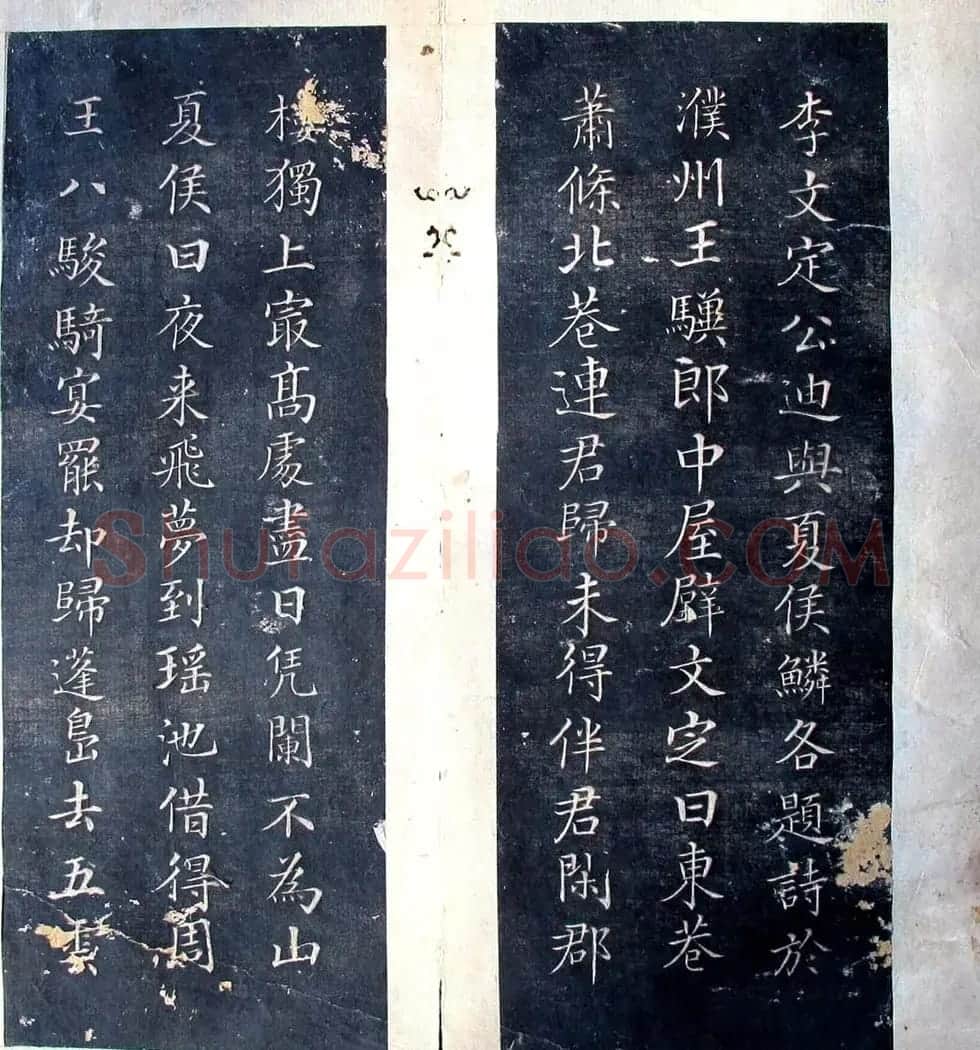 李文定公迪與夏侯鱗各題詩於
濮州王驥郎中屋壁文定曰東巷
蕭條北巷連君歸未得伴君閑郡
樓獨上最高處盡日凭闌不為山
夏侯曰夜来飛夢到瑶池借得周
王八駿騎宴罷却歸蓬島去五雲
Shufaziliao.COM